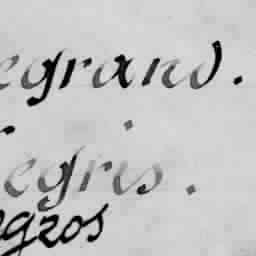 egrand.
egris.
egros